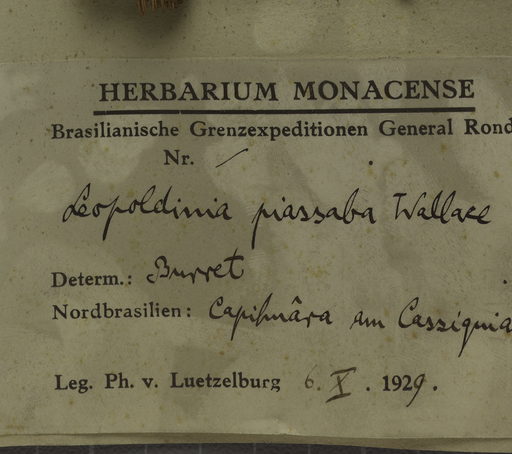 HERBARIUM MONACENSE
Brasilianische Grenzexpeditionen General Rond
Nr. —
Leopoldinia piassaba Wallace
Determ.: Burret
Nordbrasilien: am Cassiquia
Leg. Ph. v. Luetzelburg 6. X. 1929.